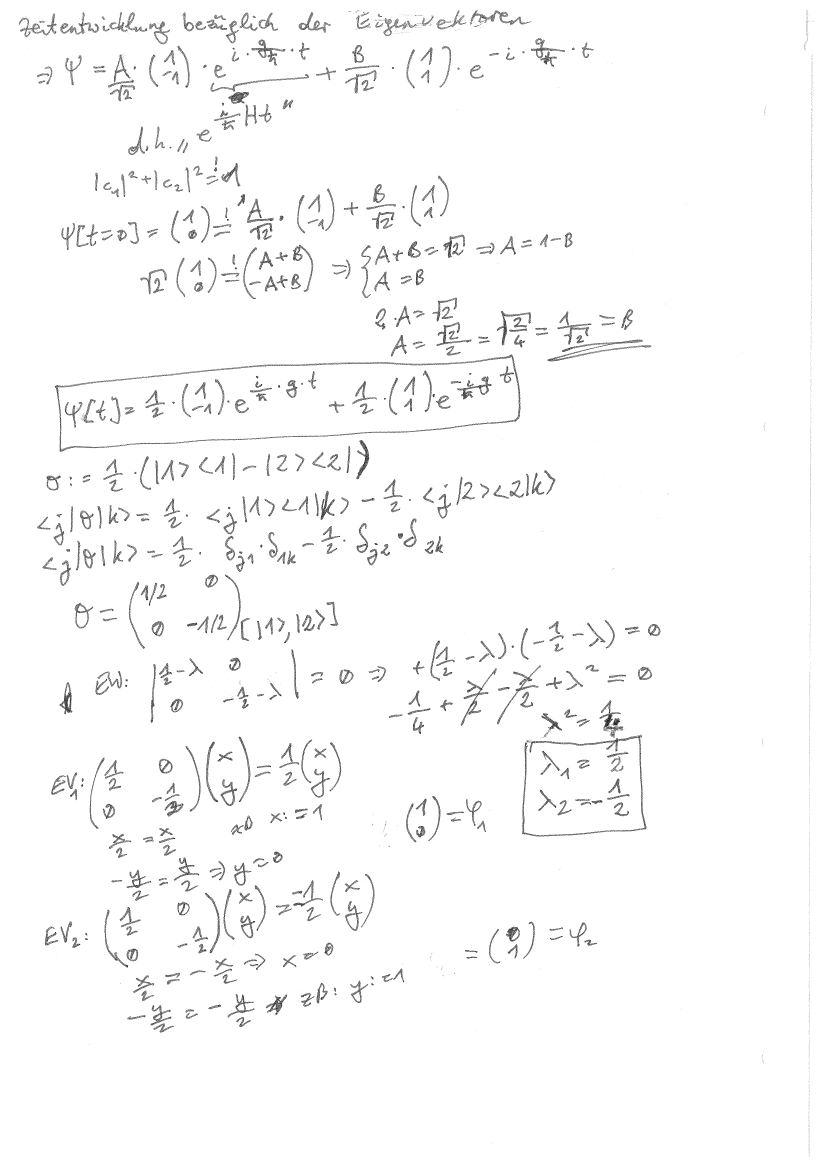 Zeitentwicklung bezüglich der Eigenvektoren
⇒ Ψ = A/√2 · (1 -1) · e^{i · g/ħ · t} + B/√2 · (1 1) · e^{-i · g/ħ · t}
d.h. „ e^{i/ħ Ht} "
|c₁|² + |c₂|² =! 1
Ψ[t=0] = (1 0) =! A/√2 · (1 -1) + B/√2 · (1 1)
√2 (1 0) =! (A+B -A+B) ⇒ { A+B = √2 ⇒ A = 1-B
A = B
2·A = √2
A = √2/2 = √(2/4) = 1/√2 = B
Ψ[t] = 1/2 · (1 -1) · e^{i/ħ · g · t} + 1/2 · (1 1) · e^{-i/ħ g t}
σ := 1/2 · (|1><1| - |2><2|)
<j|σ|k> = 1/2 · <j|1><1|k> - 1/2 · <j|2><2|k>
<j|σ|k> = 1/2 · δ_{j1} · δ_{1k} - 1/2 · δ_{j2} · δ_{2k}
σ = (1/2 0 0 -1/2)_{[|1>,|2>]}
EW: |1/2-λ 0 0 -1/2-λ| = 0 ⇒ +(1/2 - λ) · (-1/2 - λ) = 0
-1/4 + λ/2 - λ/2 + λ² = 0
λ² = 1/4
λ₁ = 1/2
λ₂ = -1/2
EV₁: (1/2 0 0 -1/2) (x y) = 1/2 (x y)
x/2 = x/2 x := 1
(1 0) = φ₁
-y/2 = y/2 ⇒ y = 0
EV₂: (1/2 0 0 -1/2) (x y) = -1/2 (x y)
x/2 = -x/2 ⇒ x = 0
= (0 1) = φ₂
-y/2 = -y/2 zB: y := 1